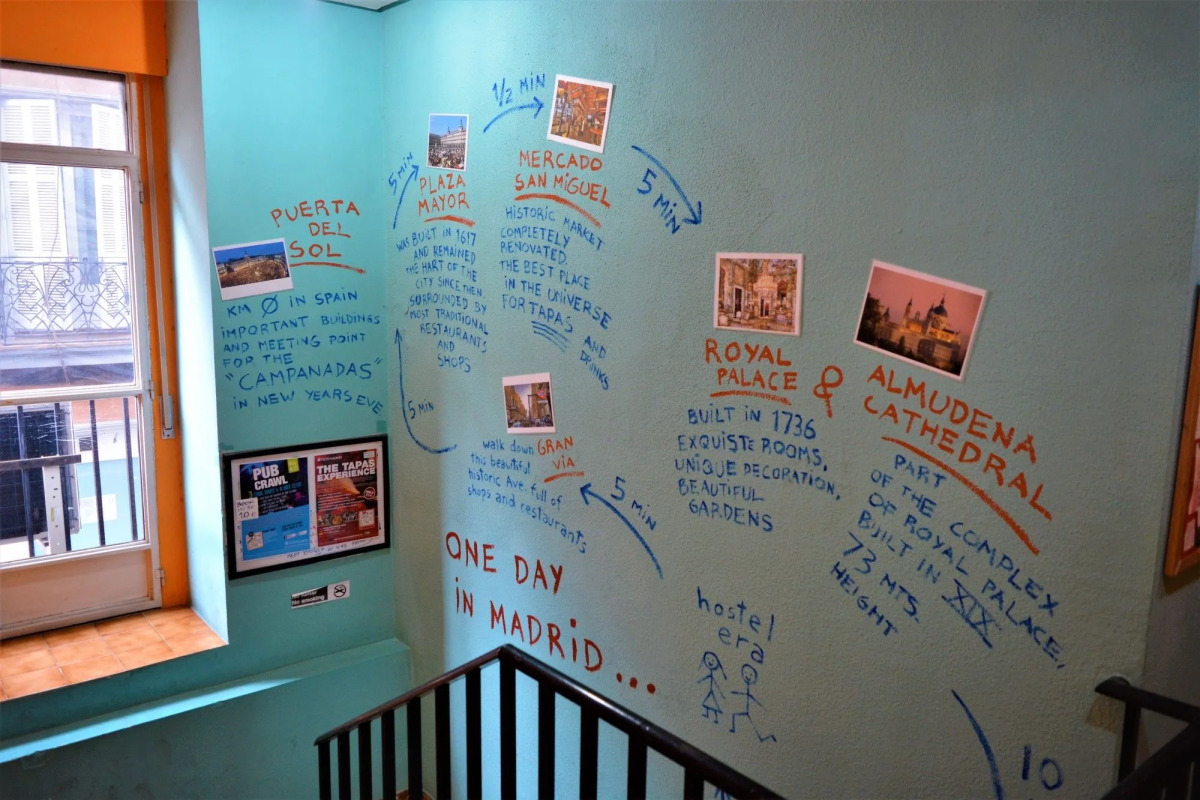 PUERTA
DEL
SOL
KM Ø IN SPAIN
IMPORTANT BUILDINGS
AND MEETING POINT
FOR THE
"CAMPANADAS"
IN NEW YEARS EVE
5 MIN
PLAZA
MAYOR
WAS BUILT IN 1617
AND REMAINED
THE HART OF THE
CITY SINCE THEN.
SURROUNDED BY
MOST TRADITIONAL
RESTAURANTS
AND
SHOPS
1/2 MIN
MERCADO
SAN MIGUEL
HISTORIC MARKET
COMPLETELY
RENOVATED.
THE BEST PLACE
IN THE UNIVERSE
FOR TAPAS AND
DRINKS
5 MIN
ROYAL
PALACE &
BUILT IN 1736
EXQUISTE ROOMS,
UNIQUE DECORATION,
BEAUTIFUL
GARDENS
ALMUDENA
CATHEDRAL
PART
OF THE COMPLEX
OF ROYAL PALACE,
BUILT IN XIX
73 MTS.
HEIGHT
5 MIN
walk down GRAN
VIA
this beautiful
historic Ave. full of
shops and restaurants
5 MIN
ONE DAY
IN MADRID...
hostel
era
10
PUB
CRAWL
THE TAPAS
EXPERIENCE
No smoking